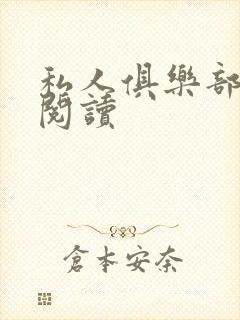 私人俱樂部
閱讀
倉本安奈